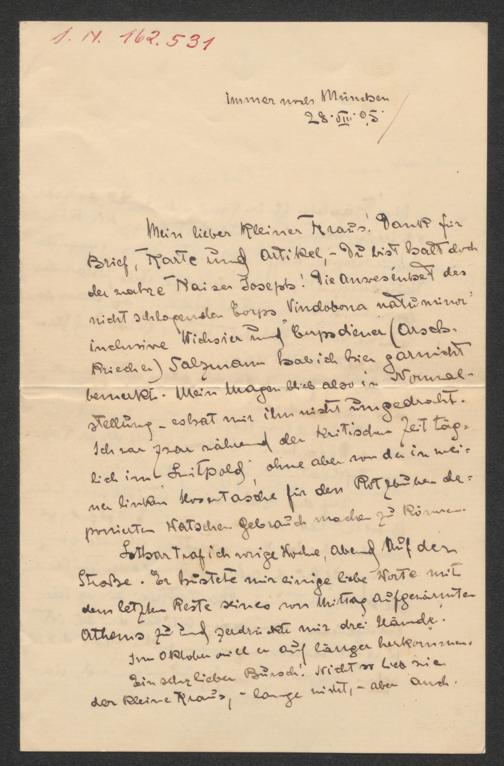 I. N. 162.531
immer noch München
28. VIII. 05.
Mein lieber kleiner Kraus! Dank für
Brief, Karte und Artikel, – Du bist halt doch
der wahre Kaiser Joseph! Die Anwesenheit des
nicht schlagenden Corps Vindobona
inclusive Wichsier und Corpsdiener (Arsch-
kriecher) Salzmann hab ich hier garnicht
bemerkt. Mein Magen blieb also in Normal-
stellung – es hat mir ihn nicht umgedreht.
Ich war zwar während der kritischen Zeit täg-
lich im "Luitpold", ohne aber von der in mei-
ner linken Hosentasche für den Rotzbuben de-
ponierten Watschen Gebrauch machen zu können.
Lothar traf ich vorige Woche, abend auf der
Straße. Er hustete mir einige liebe Worte mit
dem letzten Reste seines von Mittag
Athems zu und zerdrückte mir drei Hände.
Im Oktober will er auf länger herkommen.
Ein sehr lieber Bursch! Nicht so lieb wie
der kleine Kraus, – lange nicht, – aber auch.